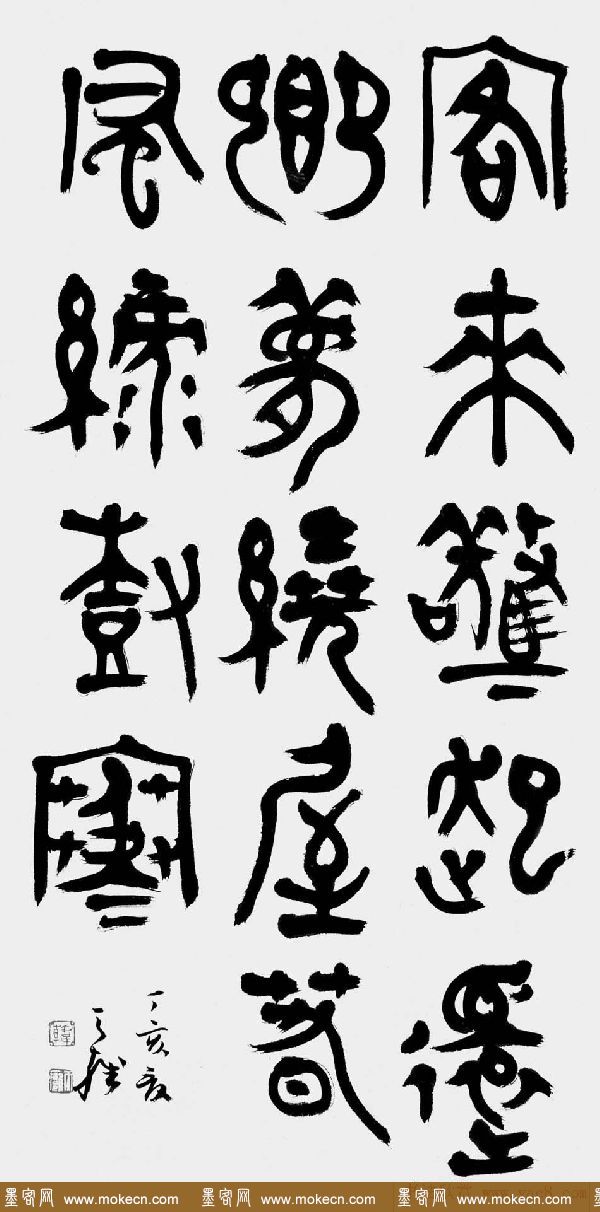 客來驚起還
鄉夢繞屋春
風綠樹寒
丁亥夏
天雍
墨客网 www.mokecn.com 墨客网 www.mokecn.com 墨客网 www.mokecn.com